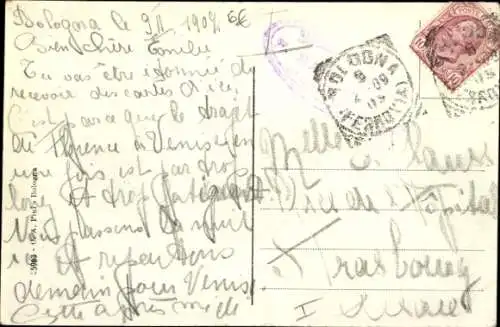 Bologna le 9 II 1909
6€
Bien chère Emilie
Tu vas être étonnée de
recevoir des cartes d'ici
C'est parce que le trajet
de Florence à Venise en
une fois est par trop
long et trop fatigant
Nous passons la nuit
ici et repartons
demain pour Venise
Cette après midi
BOLOGNA
(FERROVIA)
09
Melle
Rue de l'Hôpital
Strasbourg
I Alsace